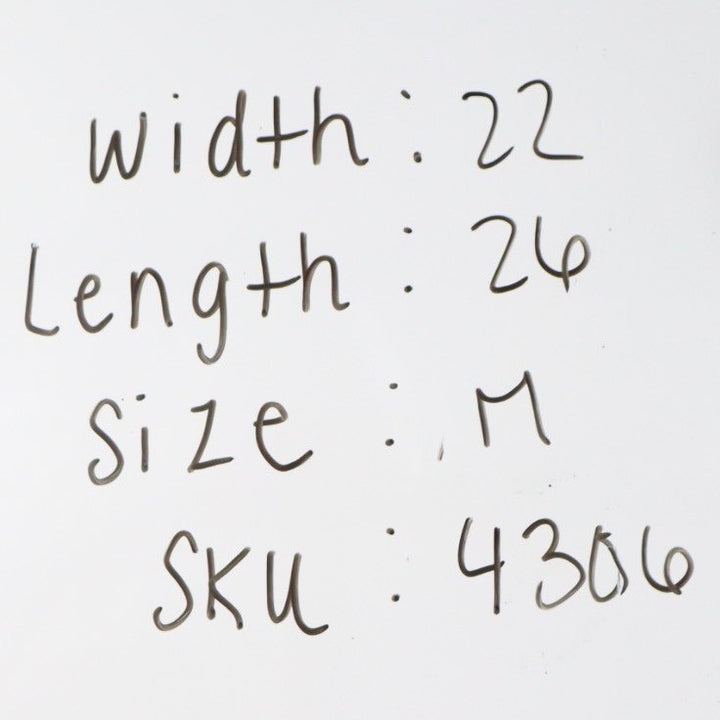 Width: 22
Length: 26
Size: M
SKU: 4306